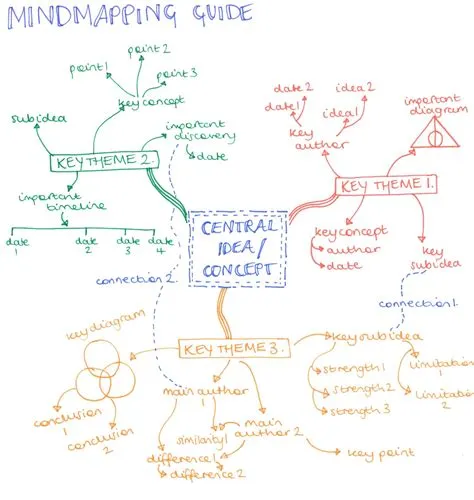 MINDMAPPING GUIDE
point 1
point 2
point 3
key concept
subidea
important
discovery
date
KEY THEME 2.
important
timeline
date
1
date
2
date
3
date
4
date 2
date 1
idea 2
idea 1
key
author
important
diagram
KEY THEME 1.
key concept
author
date
key
subidea
CENTRAL
IDEA/
CONCEPT
connection 2.
connection 1.
key diagram
KEY THEME 3.
key subidea
strength 1
strength 2
strength 3
limitation
1
limitation
2
conclusion
1
conclusion
2
main author
1
similarity 1
main
author 2
difference 1
difference 2
key point